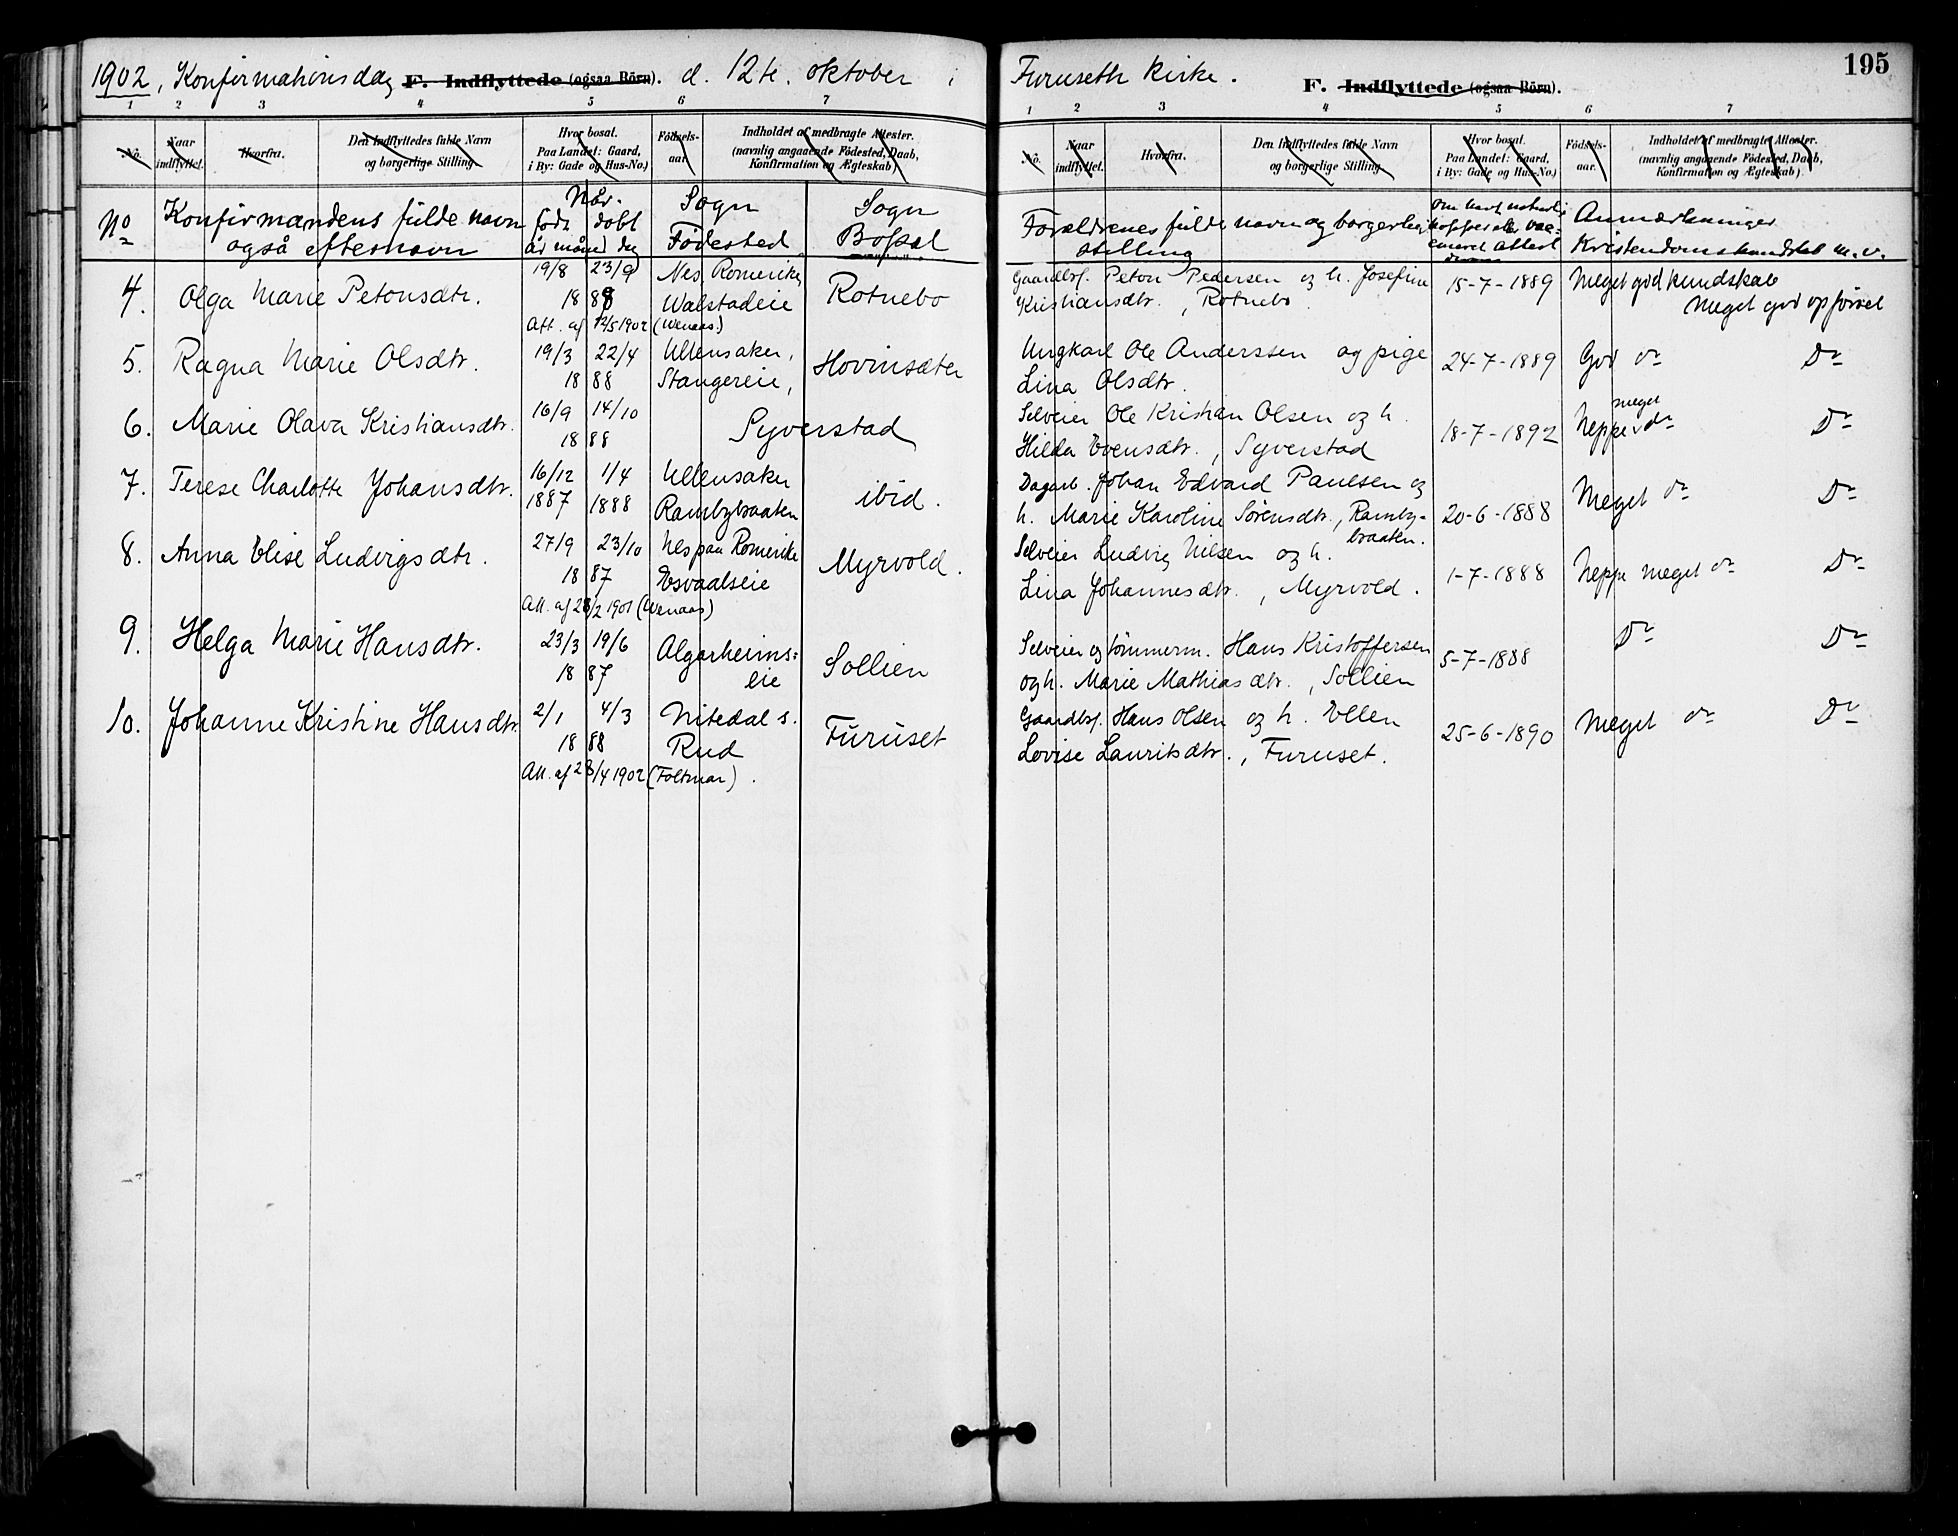 1902, Konfirmationsdag F. Indflyttede (ogsaa Börn). d. 12te. oktober i
1 2 3 4 5 6 7
No. Naar indflyttet. Hvorfra. Den Indflyttedes fulde Navn og borgerlige Stilling. Hvor bosat. Paa Landet: Gaard, i By: Gade og Hus-No.) Födsels-aar. Indholdet af medbragte Attester. (navnlig angaaende Födested, Daab, Konfirmation og Ægteskab)
No Konfirmandens fulde navn også efternavn
Når. født døbt år måned dag
Sogn Fødested
Sogn Bopæl
4. Olga Marie Petonsdtr. 19/8 23/9 Nes Romerike,
18 88 Walstadeie Rotnebo
Att. af 12/5 1902 (Wenaas.)
5. Ragna Marie Olsdtr. 19/3 22/4 Ullensaker,
18 88 Stangereie, Hovinsæter
6. Marie Olava Kristiansdtr. 16/9 14/10
18 88 Syverstad
7. Terese Charlotte Johansdtr. 16/12 1/4 Ullensaker
1887 1888 Rambybraaten ibid.
8. Anna Elise Ludvigsdtr. 27/9 23/10 Nes paa Romerike
18 87 Esvaalseie Myrvold.
Att. af 28/2 1901 (Wenaas)
9. Helga Marie Hansdtr. 23/3 19/6 Algarheims=
18 87 eie Sollien
10. Johanne Kristine Hansdtr. 2/1 4/3 Nitedal s.
18 88 Rud Furuset
Att. af 28/4 1902 (Foltmar).
195
Furuseth kirke. F. Indflyttede (ogsaa Börn).
1 2 3 4 5 6 7
No. Naar indflyttet. Hvorfra. Den Indflyttedes fulde Navn og borgerlige Stilling. Hvor bosat. Paa Landet: Gaard, i By: Gade og Hus-No.) Födsels-aar. Indholdet af medbragte Attester. (navnlig angaaende Födested, Daab, Konfirmation og Ægteskab).
Forældrenes fulde navn og borgerlig stilling
om havt naturlig kopper eller vac-cineret attest
Anmærkninger Kristendomskundskab m.v.
Gaardbr. Peton Pedersen og h. Josefine 15-7-1889 Meget god kundskab
Kristiansdtr., Rotnebo Meget god opførsel
Ungkarl Ole Anderssen og pige 24-7-1889 God do Do
Lina Olsdtr.
Selveier Ole Kristian Olsen og h. meget
Hilda Evensdtr., Syverstad 18-7-1892 Neppe do Do
Dagarb. Johan Edvard Paulsen og Meget do Do
h. Marie Karoline Sørensdtr., Ramby- 20-6-1888
braaten.
Selveier Ludvig Nilsen og h.
Lina Johannesdtr., Myrvold. 1-7-1888 Neppe meget do Do
Selveier og tømmerm. Hans Kristoffersen 5-7-1888 Do Do
og h. Marie Mathiasdtr., Sollien
Gaardbr. Hans Olsen og h. Ellen 25-6-1890 Meget do Do
Lovise Lauritsdtr., Furuset.